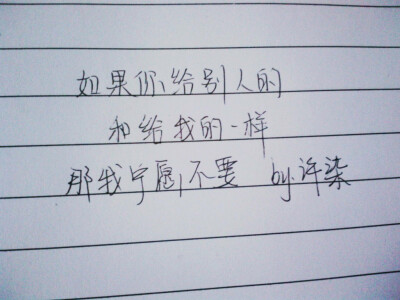 如果你给别人的
和给我的一样
那我宁愿不要 by.许染